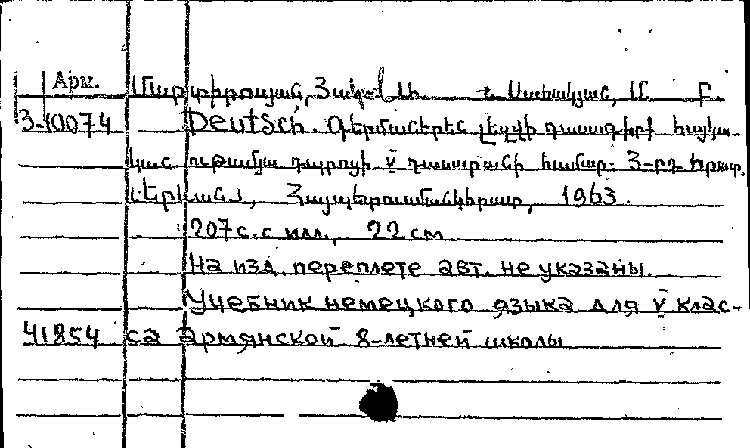 Арм. Մարտիրոսյան, և Սահակյան, Մ.
3-10074 Deutsch. Գերմաներեն լեզվի դասագիրք հայկա-
կան ութամյա դպրոցի V դասարանի համար։ 3-րդ հրատ.
Երևան, Հայպետուսմանկհրատ, 1963.
207 с. с илл., 22 см
На изд. переплете авт. не указаны.
Учебник немецкого языка для V клас-
41854 са армянской 8-летней школы